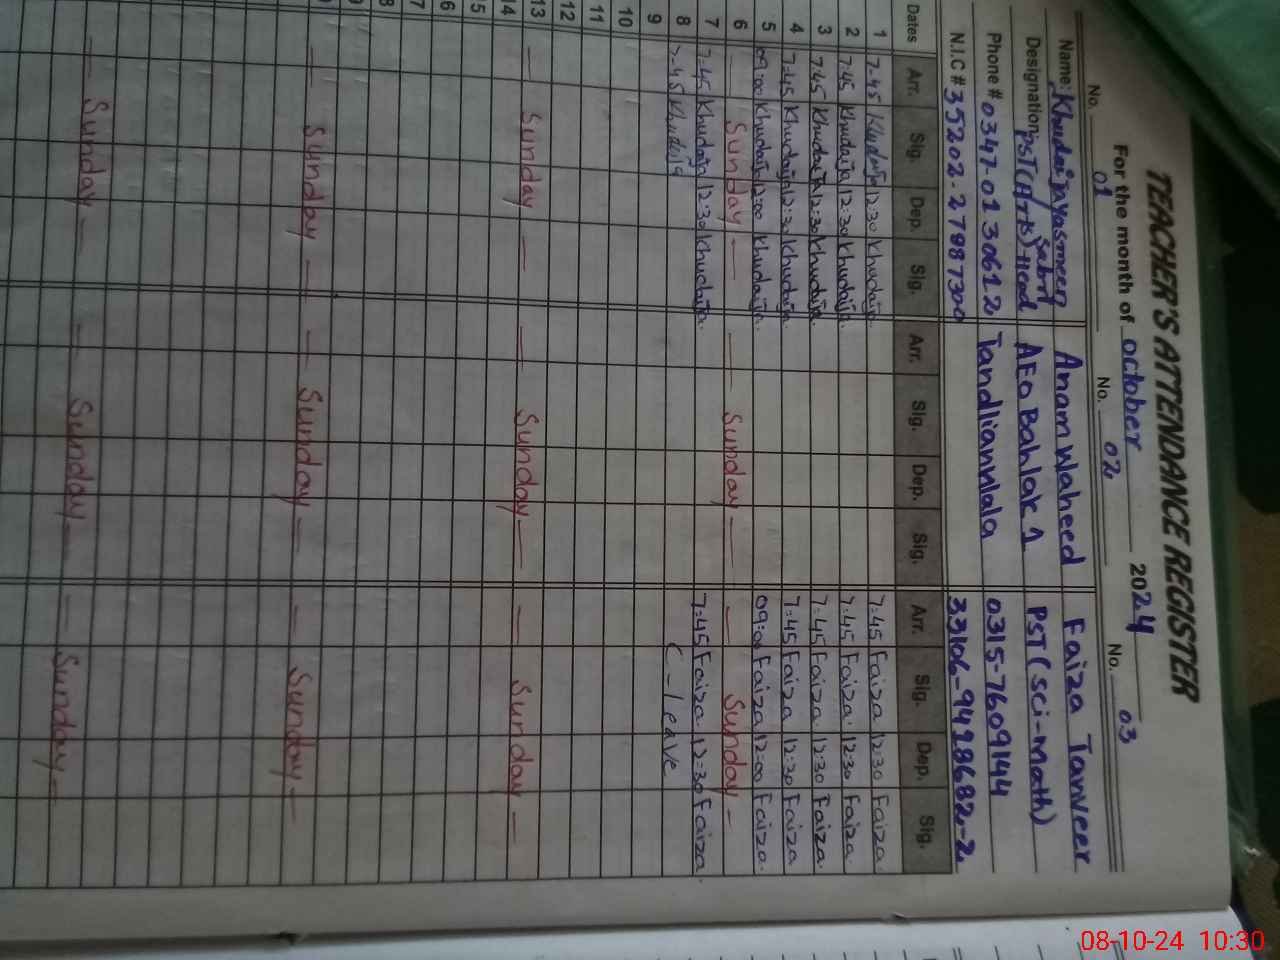 TEACHER'S ATTENDANCE REGISTER
For the month of October 2024
No. 01 No. 02 No. 03
Name: Khudaija Yasmeen Anam Waheed Faiza Tanveer
Sabri
Designation: PST(Arts) Head AEO Bahlak 1 PST (Sci-Math)
Phone # 0347-0130612 Tandlianwala 0315-7609144
N.I.C # 35202-2798730-0 33106-9428682-2
Dates Arr. Sig. Dep. Sig. Arr. Sig. Dep. Sig. Arr. Sig. Dep. Sig.
1 7-45 Khudaija 12:30 Khudaija 7:45 Faiza 12:30 Faiza
2 7:45 Khudaija 12:30 Khudaija 7:45 Faiza 12:30 Faiza
3 7:45 Khudaija 12:30 Khudaija 7:45 Faiza 12:30 Faiza
4 7:45 Khudaija 12:30 Khudaija 7:45 Faiza 12:30 Faiza
5 09:00 Khudaija 12:00 Khudaija 09:00 Faiza 12:00 Faiza
6 — Sunday — — Sunday — — Sunday —
7 7:45 Khudaija 12:30 Khudaija 7:45 Faiza 12:30 Faiza
8 7-45 Khudaija C-leave
9
10
11
12
13 — Sunday — — Sunday — — Sunday —
14
15
16
17
18
— Sunday — — Sunday — — Sunday —
— Sunday — — Sunday — — Sunday —
08-10-24 10:30